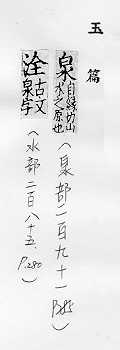 玉篇
泉 自緣切山水之原也 (泉部二百九十一 P.285)
洤 古文泉字 (水部二百八十五. P.280)